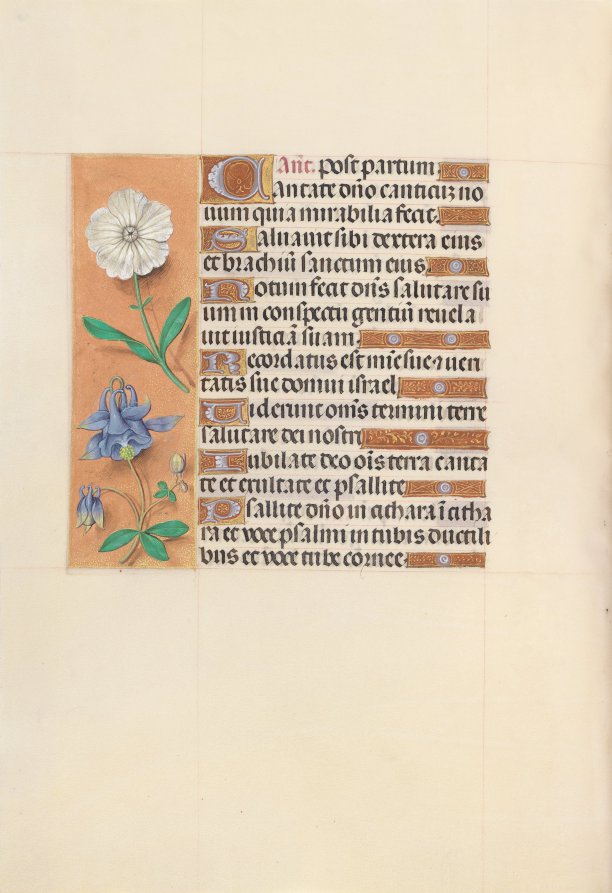 Añt. Post partum.
Cantate dño canticuʒ no
uum quia mirabilia fecit.
Saluauit sibi dextera eius
et brachiū sanctum eius.
Notum fecit dñs salutare su
um in conspectu gentiū reuela
uit iusticiā suam.
Recordatus est mīe sue ⁊ ueri
tatis sue domui israel
Uiderunt om̄s termini terre
salutare dei nostri
Iubilate deo oīs terra canta
te et exultate et psallite
Psallite dño in cithara ī citha
ra et uoce psalmi in tubis ductili
bus et uoce tube cornee